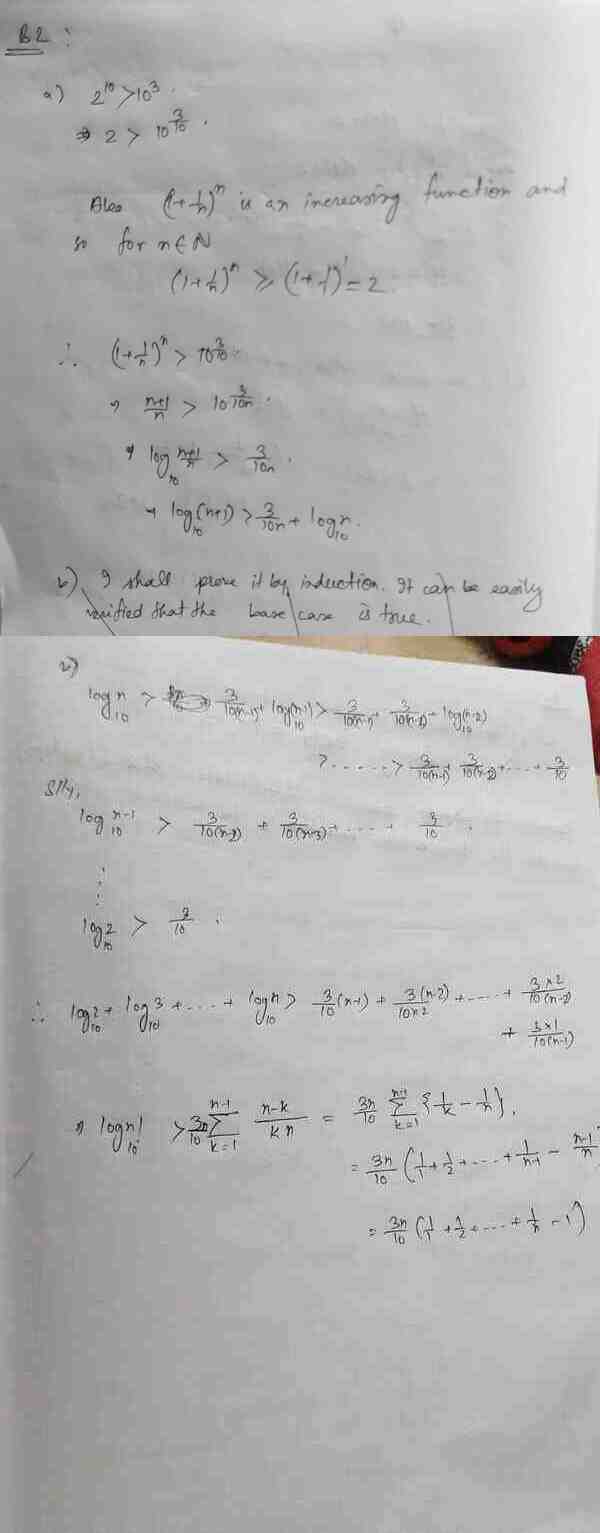 B2 :
a) 2^10 > 10^3 .
⇒ 2 > 10^(3/10) .
Also (1+1/n)^n is an increasing function and
so for n ∈ N
(1+1/n)^n ≥ (1+1/1)^1 = 2
∴ (1+1/n)^n > 10^(3/10) .
⇒ (n+1)/n > 10^(3/10n) .
⇒ log_10 (n+1)/n > 3/10n .
⇒ log_10 (n+1) > 3/10n + log_10 n .
b) I shall prove it by induction. It can be easily
verified that the base case is true.
b)
log_10 n > 3/10(n-1) + log_10 (n-1) > 3/10(n-1) + 3/10(n-2) + log_10 (n-2)
> ..... > 3/10(n-1) + 3/10(n-2) + ... + 3/10
Slly,
log_10 n-1 > 3/10(n-2) + 3/10(n-3) + ... + 3/10 .
⋮
log_10 2 > 3/10 .
∴ log_10 2 + log_10 3 + ... + log_10 n > 3/10 (n-1) + 3(n-2)/10×2 + .... + 3×2/10(n-2)
+ 3×1/10(n-1)
⇒ log_10 n! > 3n/10 ∑_{k=1}^{n-1} (n-k)/kn = 3n/10 ∑_{k=1}^{n-1} {1/k - 1/n} .
= 3n/10 (1/1 + 1/2 + ... + 1/(n-1) - (n-1)/n
= 3n/10 (1/1 + 1/2 + ... + 1/n - 1)